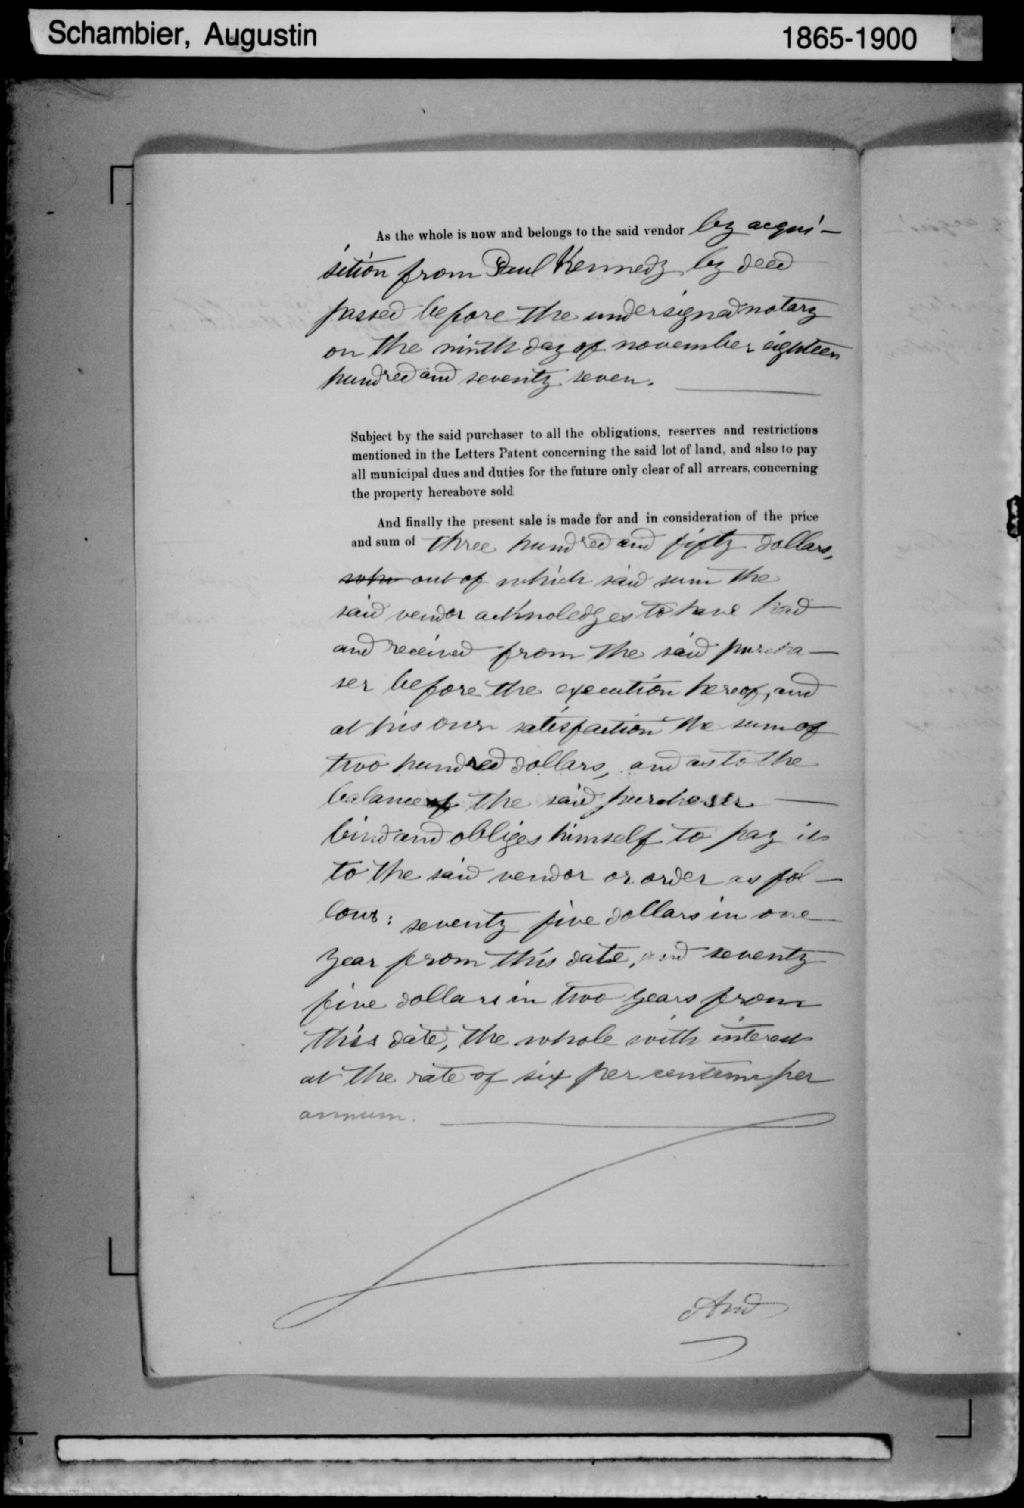 Schambier, Augustin 1865-1900
As the whole is now and belongs to the said vendor by acqui-
sition from Paul Kennedy by deed
passed before the undersigned notary
on the ninth day of november eighteen
hundred and seventy seven.
Subject by the said purchaser to all the obligations, reserves and restrictions
mentioned in the Letters Patent concerning the said lot of land, and also to pay
all municipal dues and duties for the future only clear of all arrears, concerning
the property hereabove sold
And finally the present sale is made for and in consideration of the price
and sum of three hundred and fifty dollars,
out of which said sum the
said vendor acknoledges to have had
and received from the said purcha-
ser before the execution hereof, and
at his own satisfaction the sum of
two hundred dollars, and as to the
balance of the said purchaser
bind and obliges himself to pay it
to the said vendor or order as fol-
lows: seventy five dollars in one
year from this date, and seventy
five dollars in two years from
this date, the whole with interest
at the rate of six per centum per
annum.
And